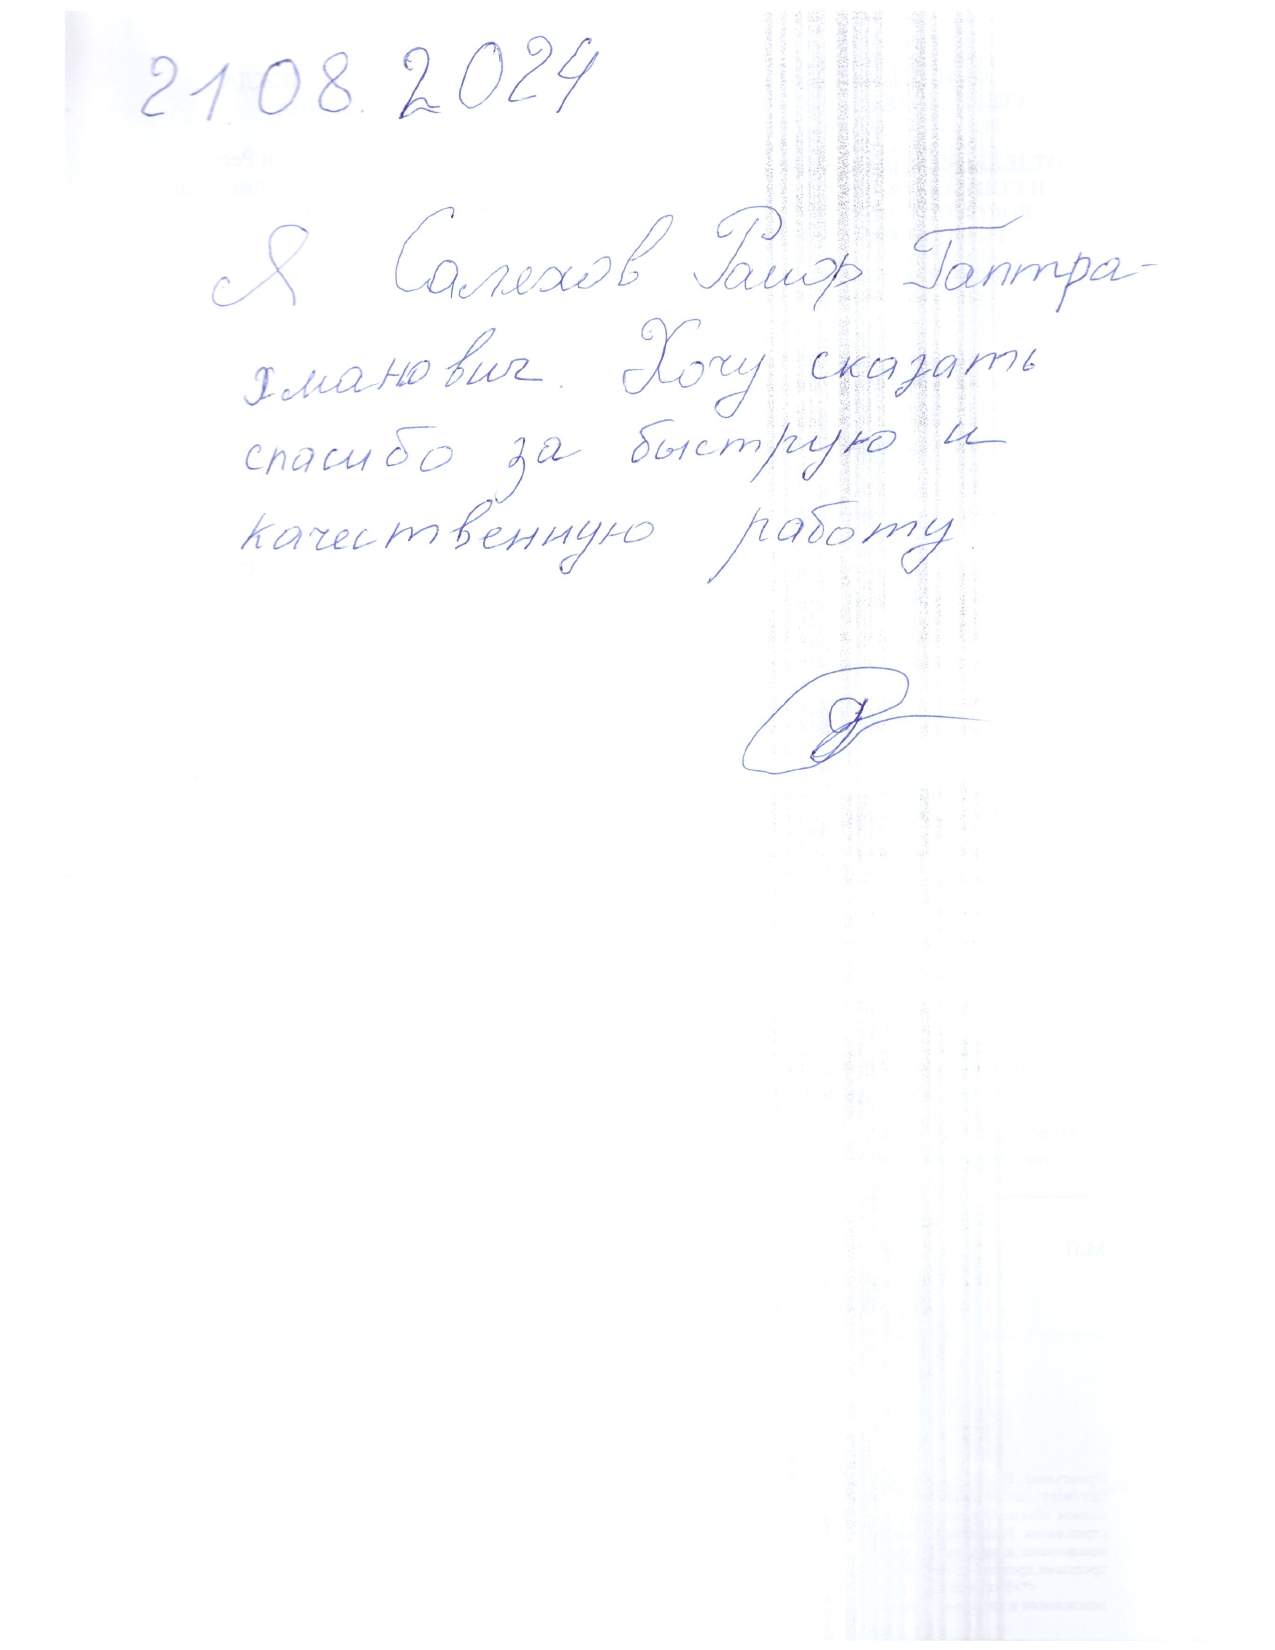 21.08.2024
Я Салехов Раиф Гаптра-
хманович. Хочу сказать
спасибо за быструю и
качественную работу.